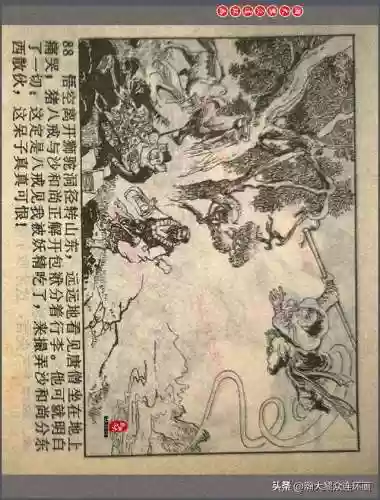 88 悟空离开狮驼洞径转山东，远远地看见唐僧坐在地上
痛哭，猪八戒与沙和尚正解开包袱分着行李。他可就明白
了一切：这定是八戒见我被妖精吃了，来撮弄沙和尚分东
西散伙，这呆子真真可恨！
头条 @瀚大聚众连环画